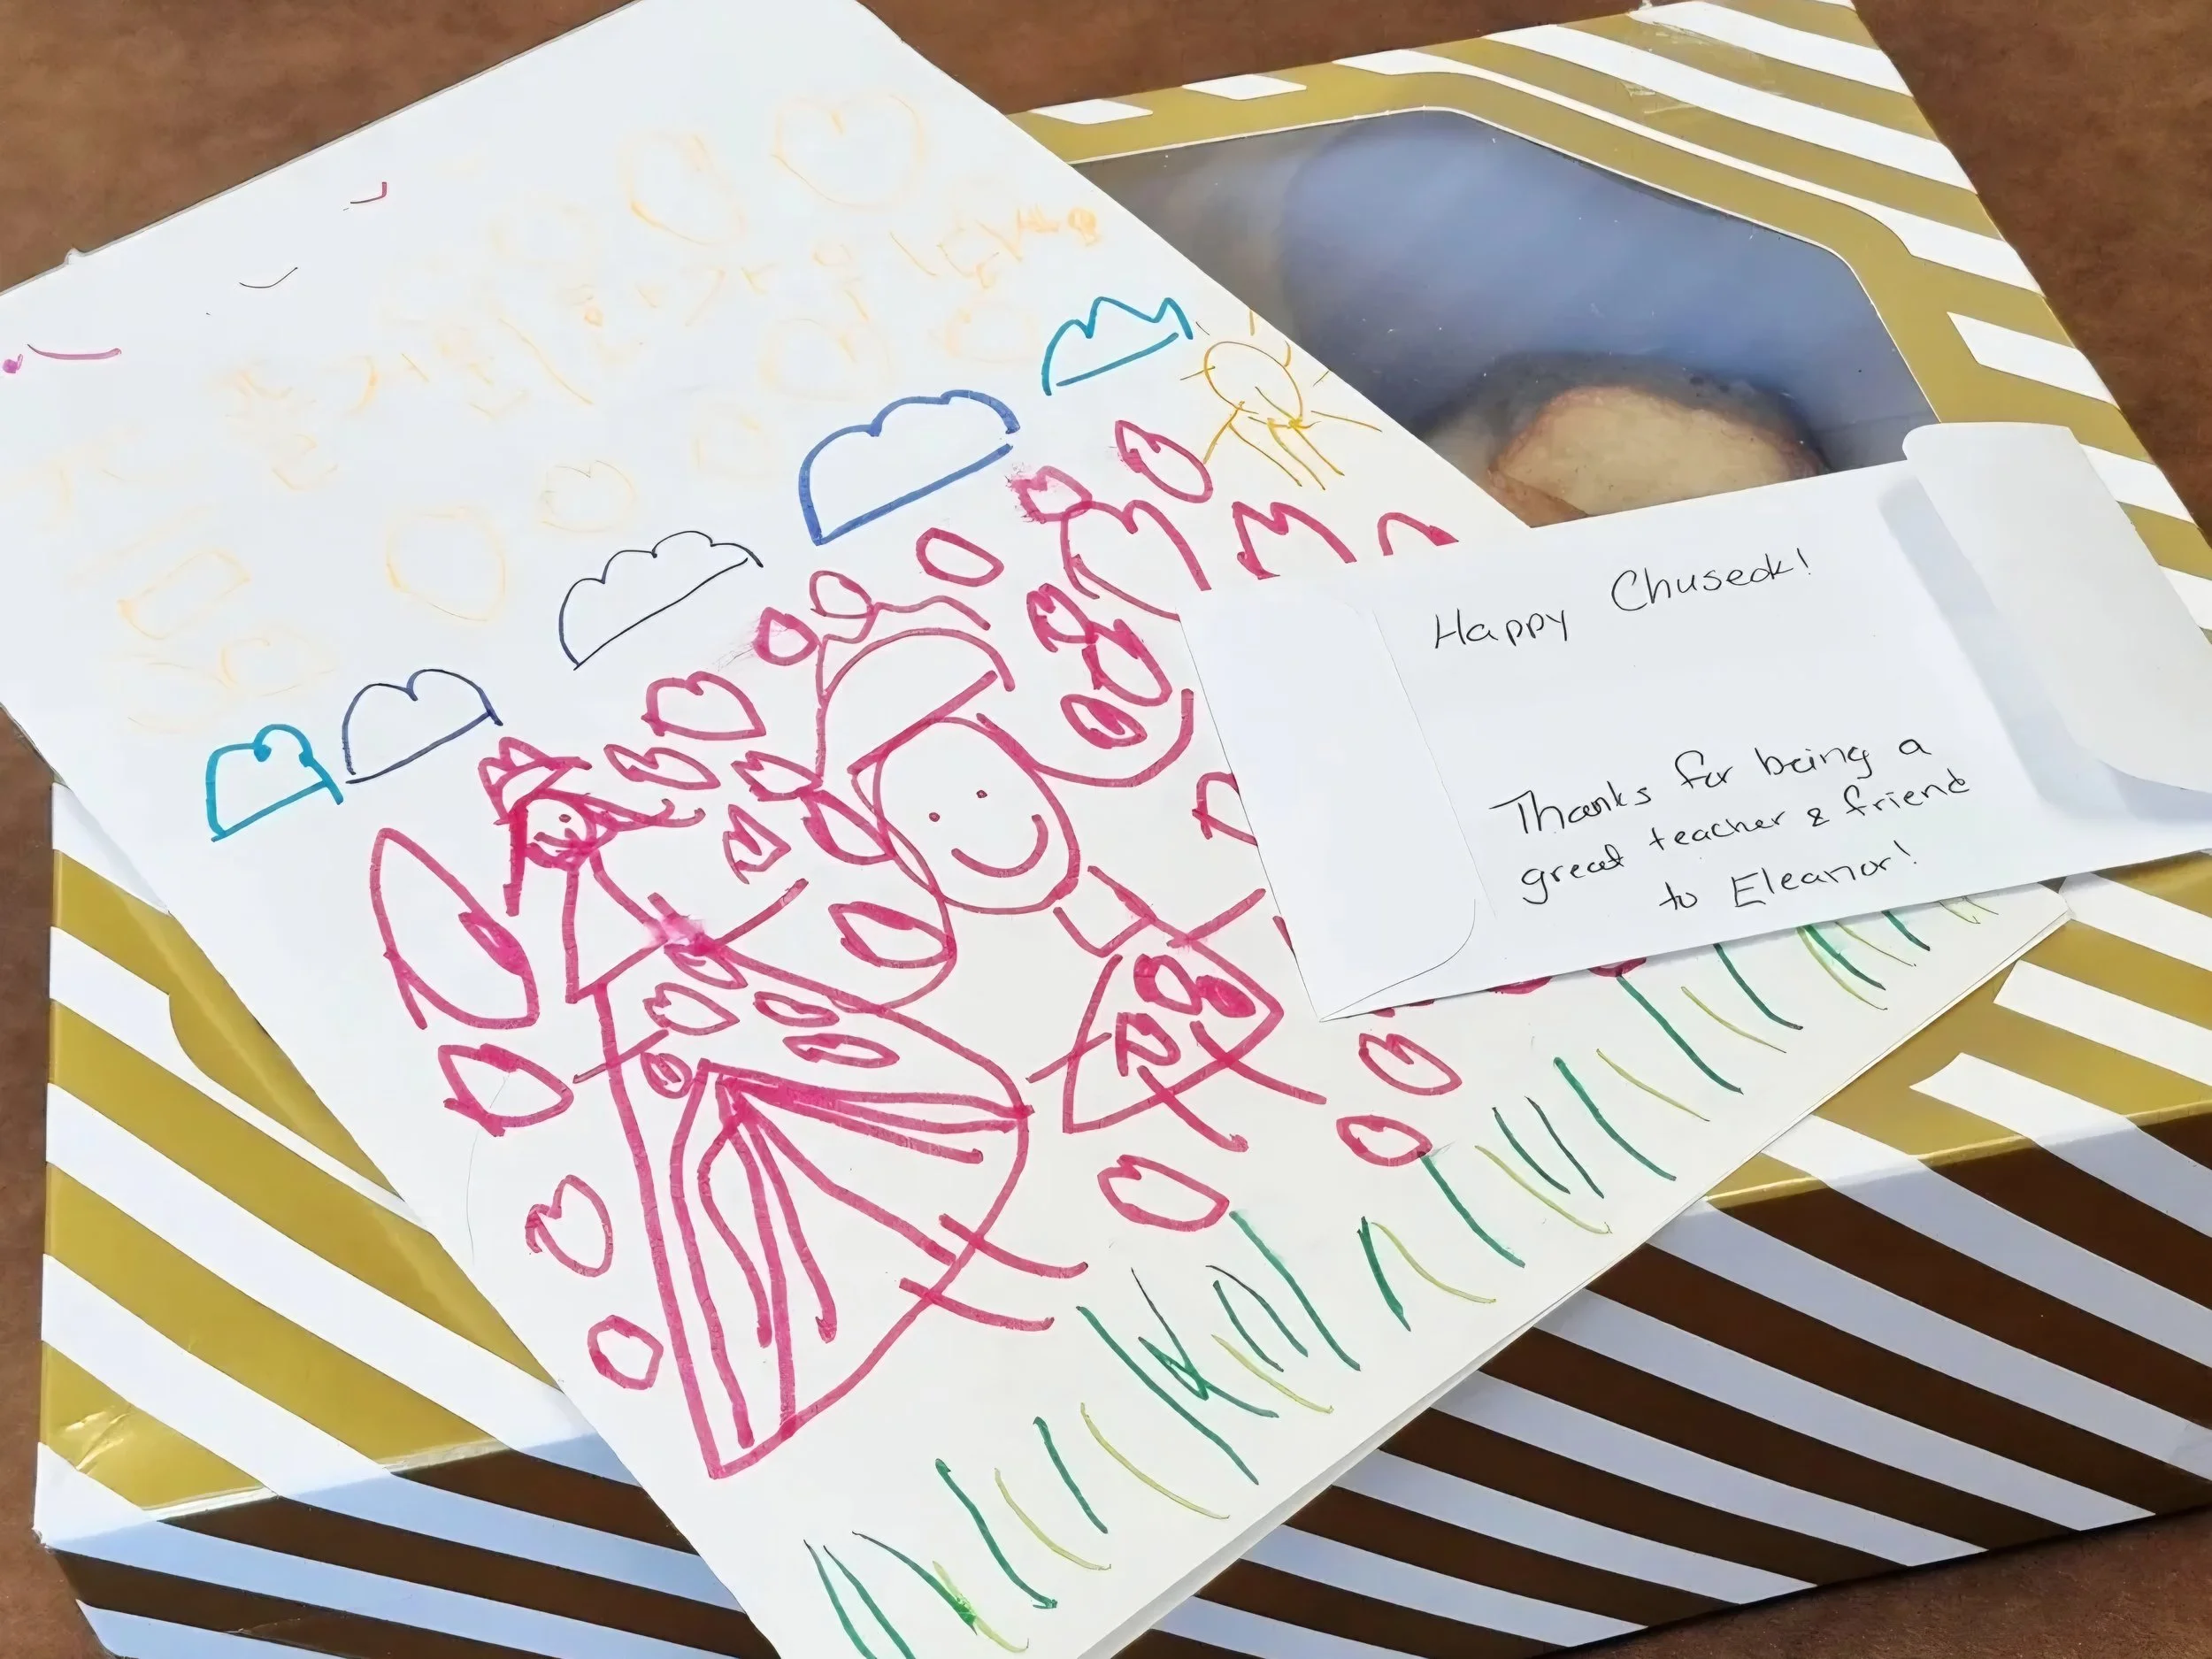 Happy Chuseok!
Thanks for being a
great teacher & friend
to Eleanor!